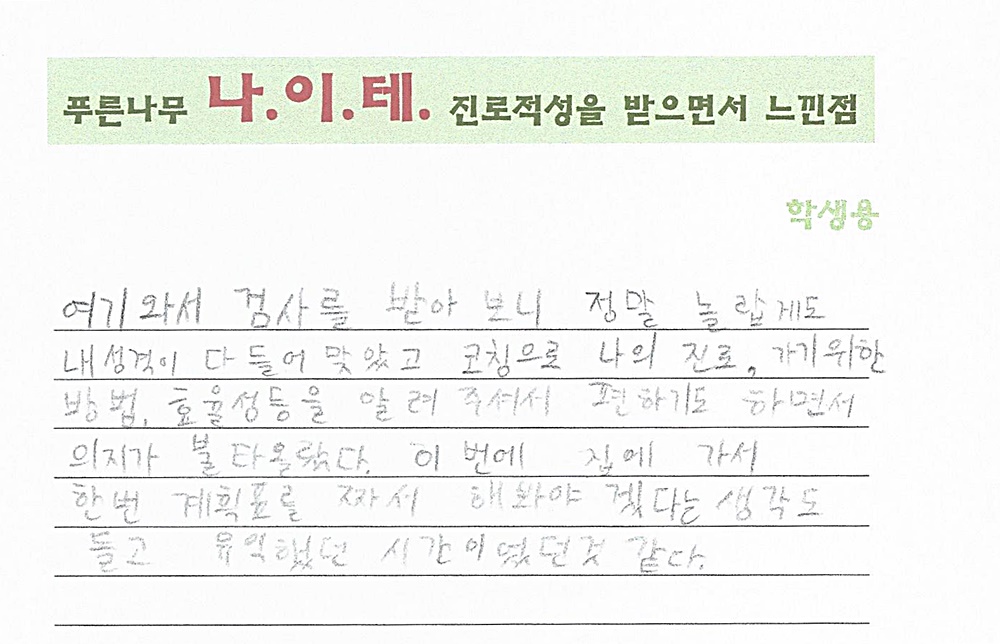 푸른나무 나.이.테. 진로적성을 받으면서 느낀점
학생용
여기 와서 검사를 받아 보니 정말 놀랍게도
내 성격이 다 들어 맞았고 코칭으로 나의 진로, 가기위한
방법, 효율성등을 알려 주셔서 편하기도 하면서
의지가 불타올랐다. 이번에 집에 가서
한번 계획표를 짜서 해봐야 겠다는 생각도
들고 유익했던 시간이였던것 같다.